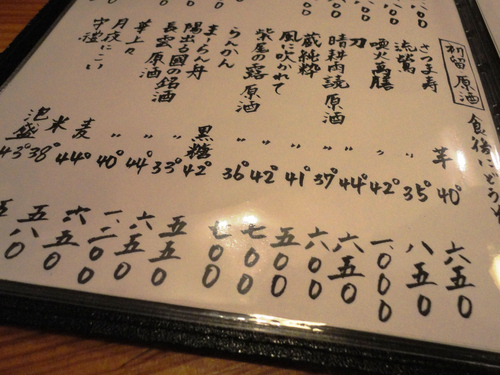 初留 原酒 食後にどう
さつま寿 芋 40°
流鶯 〃 35°
萬膳 〃 42°
刀 〃 44°
晴耕雨読 原酒 〃 37°
蔵純粋 〃 41°
風に吹かれて 〃 42°
紫尾の露 原酒 〃 36°
らんかん 黒糖 42°
まーらん舟 〃 33°
陽出る国の銘酒 〃 44°
長雲 原酒 〃 40°
麦 44°
月夜 米 38°
守禮 泡盛 43°
六五〇
八五〇
一.〇〇〇
六五〇
六〇〇
五〇〇
七〇〇
七〇〇
五五〇
六五〇
一.二〇〇
六五〇
五八〇